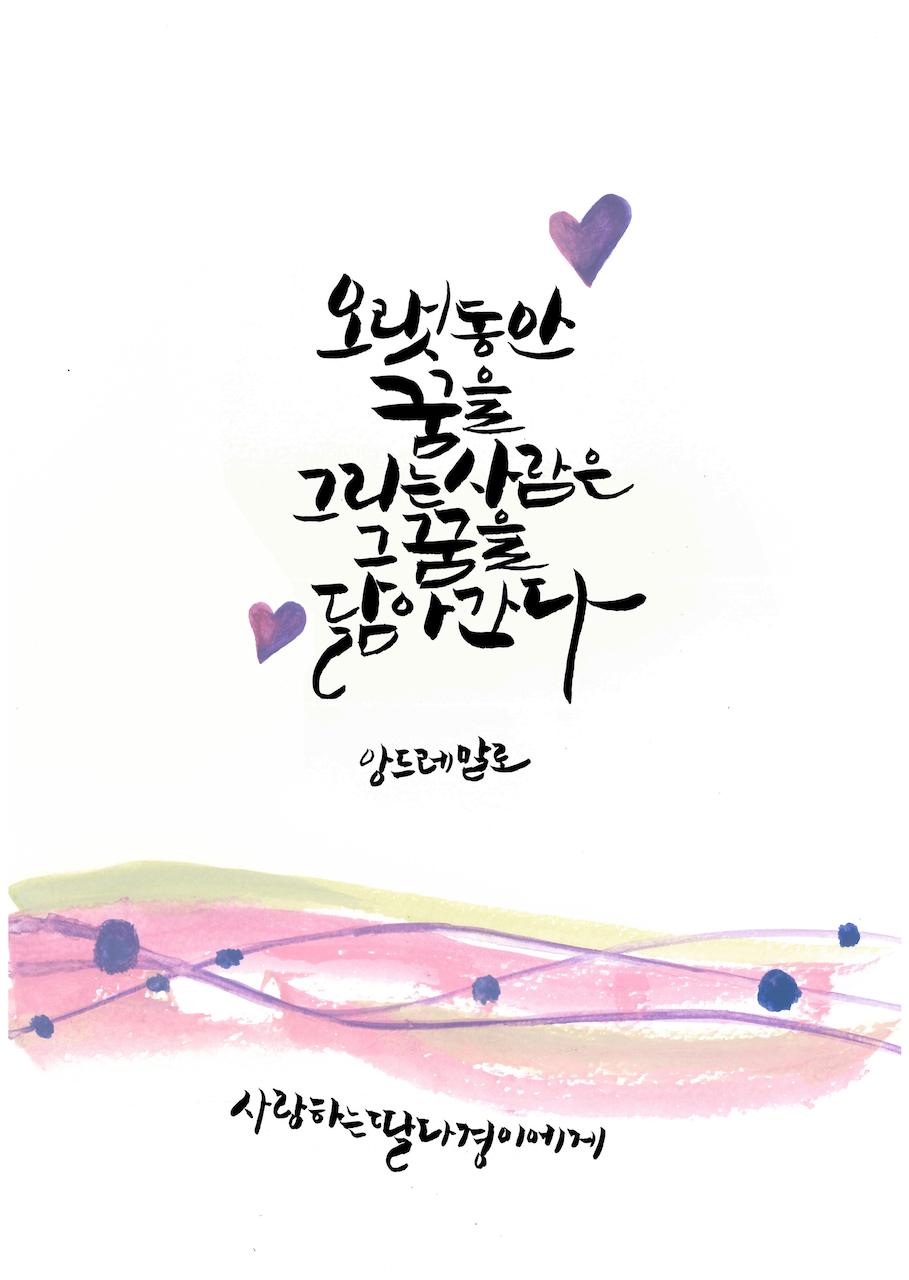 오랫동안
꿈을
그리는 사람은
그 꿈을
닮아간다
앙드레 말로
사랑하는 딸 다경이에게